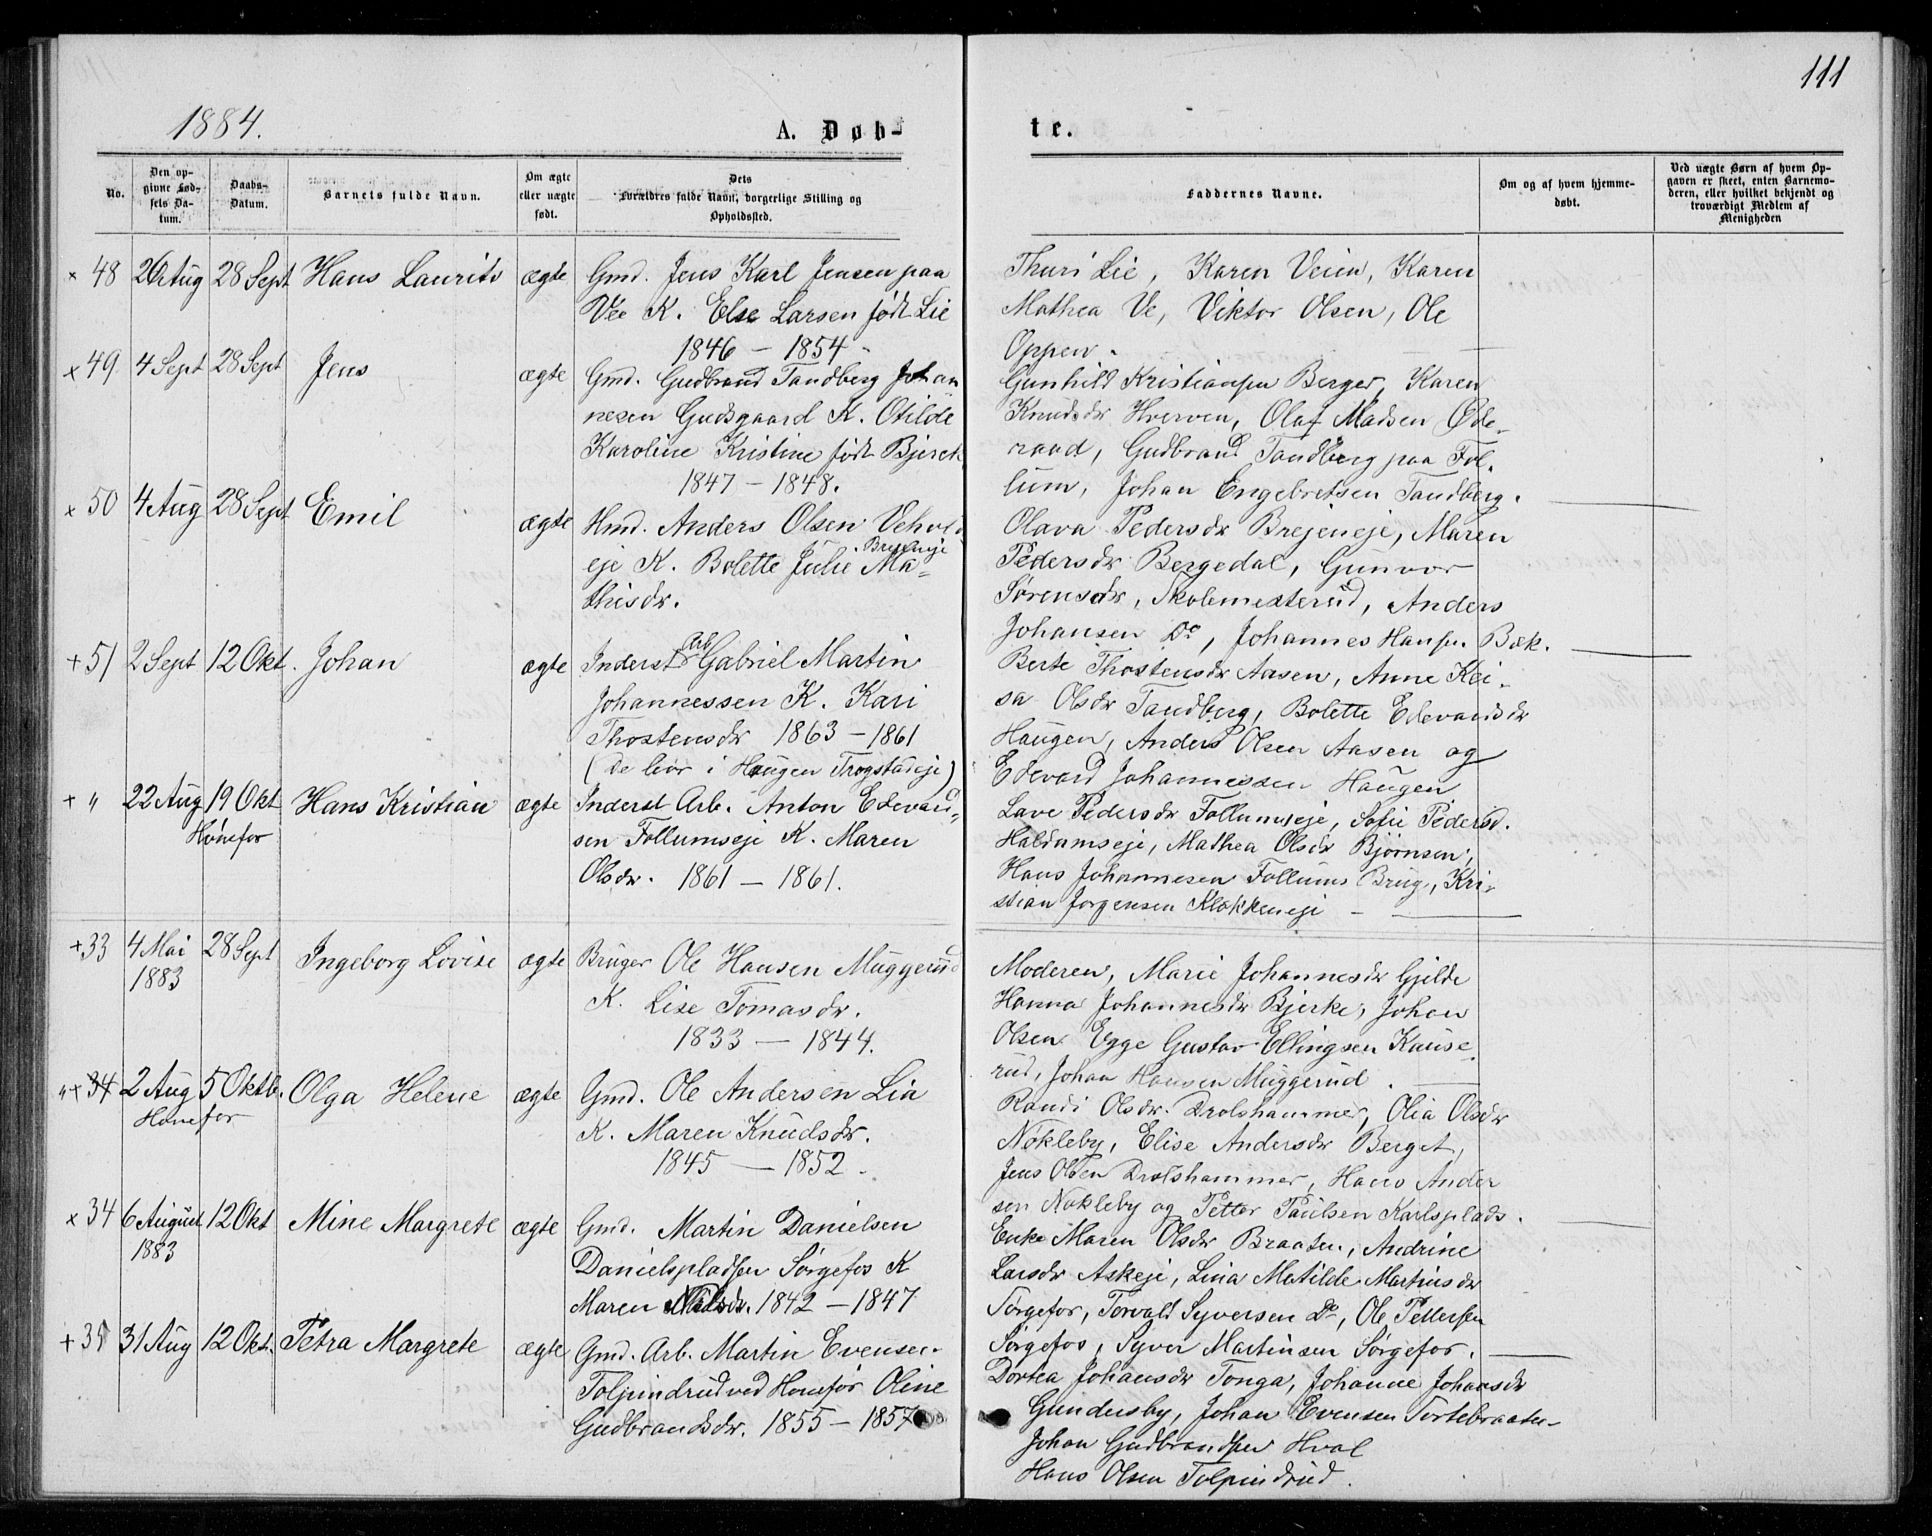 111
1884.
A. Døb-
te.
No.
Den op-
givne Fød-
sels Da-
tum.
Daabs-
Datum.
Barnets fulde Navn.
Om ægte
eller uægte
født.
Dets
Forældres fulde Navn, borgerlige Stilling og
Opholdssted.
Faddernes Navne.
Om og af hvem hjemme-
døbt.
Ved uægte Børn af hvem Op-
gaven er skeet, enten Barnemo-
deren, eller hvilket bekjendt og
troværdigt Medlem af
Menigheden
× 48 26 Aug 28 Sept Hans Laurits ægte
Gmd. Jens Karl Jensen paa
Vee K. Else Larsen født Lie
1846 — 1854
Thuri Lie, Karen Veien, Karen
Mathea Ve, Viktor Olsen, Ole
Oppen.
× 49 4 Sept 28 Sept Jens ægte
Gmd. Gudbrand Tandberg Johan
nesen Gudsgaard K. Otilde
Karoline Kristine født Bjerck
1847 — 1848.
Gunhild Kristiansen Berger, Karen
Knudsdr Hverven, Olaf Madsen Øde-
raad, Gudbrand Tandberg paa Fol-
lum, Johan Engebretsen Tandberg.
× 50 4 Aug 28 Sept Emil ægte
Hmd. Anders Olsen Vehvld
Brejeneje
eje K. Bolette Julie Ma-
thisdr.
Olava Pedersdr Brejeneje, Maren
Pedersdr Bergedal, Gunvor
Sørensdr, Skolemesterud, Anders
Johansen Do, Johannes Hansen Bæk.
+ 51 2 Sept 12 Okt. Johan ægte
Inderst Arb Gabriel Martin
Johannessen K. Kari
Thostensdr 1863 — 1861
(de bor i Haugen Trogstadeje)
Berte Thostensdr Aasen, Anne Kai-
sa Olsdr Tandberg, Bolette Edevardsdr
Haugen, Anders Olsen Aasen og
Edevard Johannessen Haugen
+ " 22 Aug 19 Okt Hans Kristian ægte
Hønefos
Inderst Arb. Anton Edevard-
sen Follumseje K. Maren
Olsdr. 1861 — 1861.
Lave Pedersdr Follumseje, Sofie Pedersd.
Haldumseje, Mathea Olsdr Bjørnsen,
Hans Johannesen Follums Brug, Kri-
stian Jorgensen Klokkeneje —
+ 33 4 Mai 28 Sept Ingeborg Lovise ægte
1883
Bruger Ole Hansen Muggerud
K. Lise Tomasdr.
1833 — 1844.
Moderen, Marie Johannesdr Gjilde
Hanna Johannesdr Bjerke, Johan
Olsen Egge Gustav Ellingsen Kause-
rud, Johan Hansen Muggerud.
"× 34 2 Aug 5 Oktb. Olga Helene ægte
Honefos
Gmd. Ole Andersen Lia
K. Maren Knudsdr.
1845 — 1852.
Randi Olsdr. Drolshammer, Olia Olsdr
Nokleby, Elise Andersdr Berget,
Jens Olsen Drolshammer, Hans Ander
sen Nokleby og Petter Paulsen Karlsplads.
× 34 6 August 12 Okt Mine Margrete ægte
1883
Gmd. Martin Danielsen
Danielspladsen Sørgefos K
Maren Nilsdr. 1842 — 1847
Enke Maren Olsdr Braaten, Andrine
Larsdr Askeje, Lina Matilde Martinsdr
Sørgefos, Torvald Syversen Do, Ole Pettersen
Sørgefos, Syver Martinsen Sørgefos.
+ 35 31 Aug 12 Okt. Petra Margrete ægte
Gmd. Arb. Martin Evensen
Tolpindrud ved Honefos Oline
Gudbrandsdr. 1855 — 1857
Dortea Johansdr Tonga, Johanne Johansdr
Gundersby, Johan Evensen Tortebraaten
Johan Gudbrandsen Hval
Hans Olsen Tolpindrud.